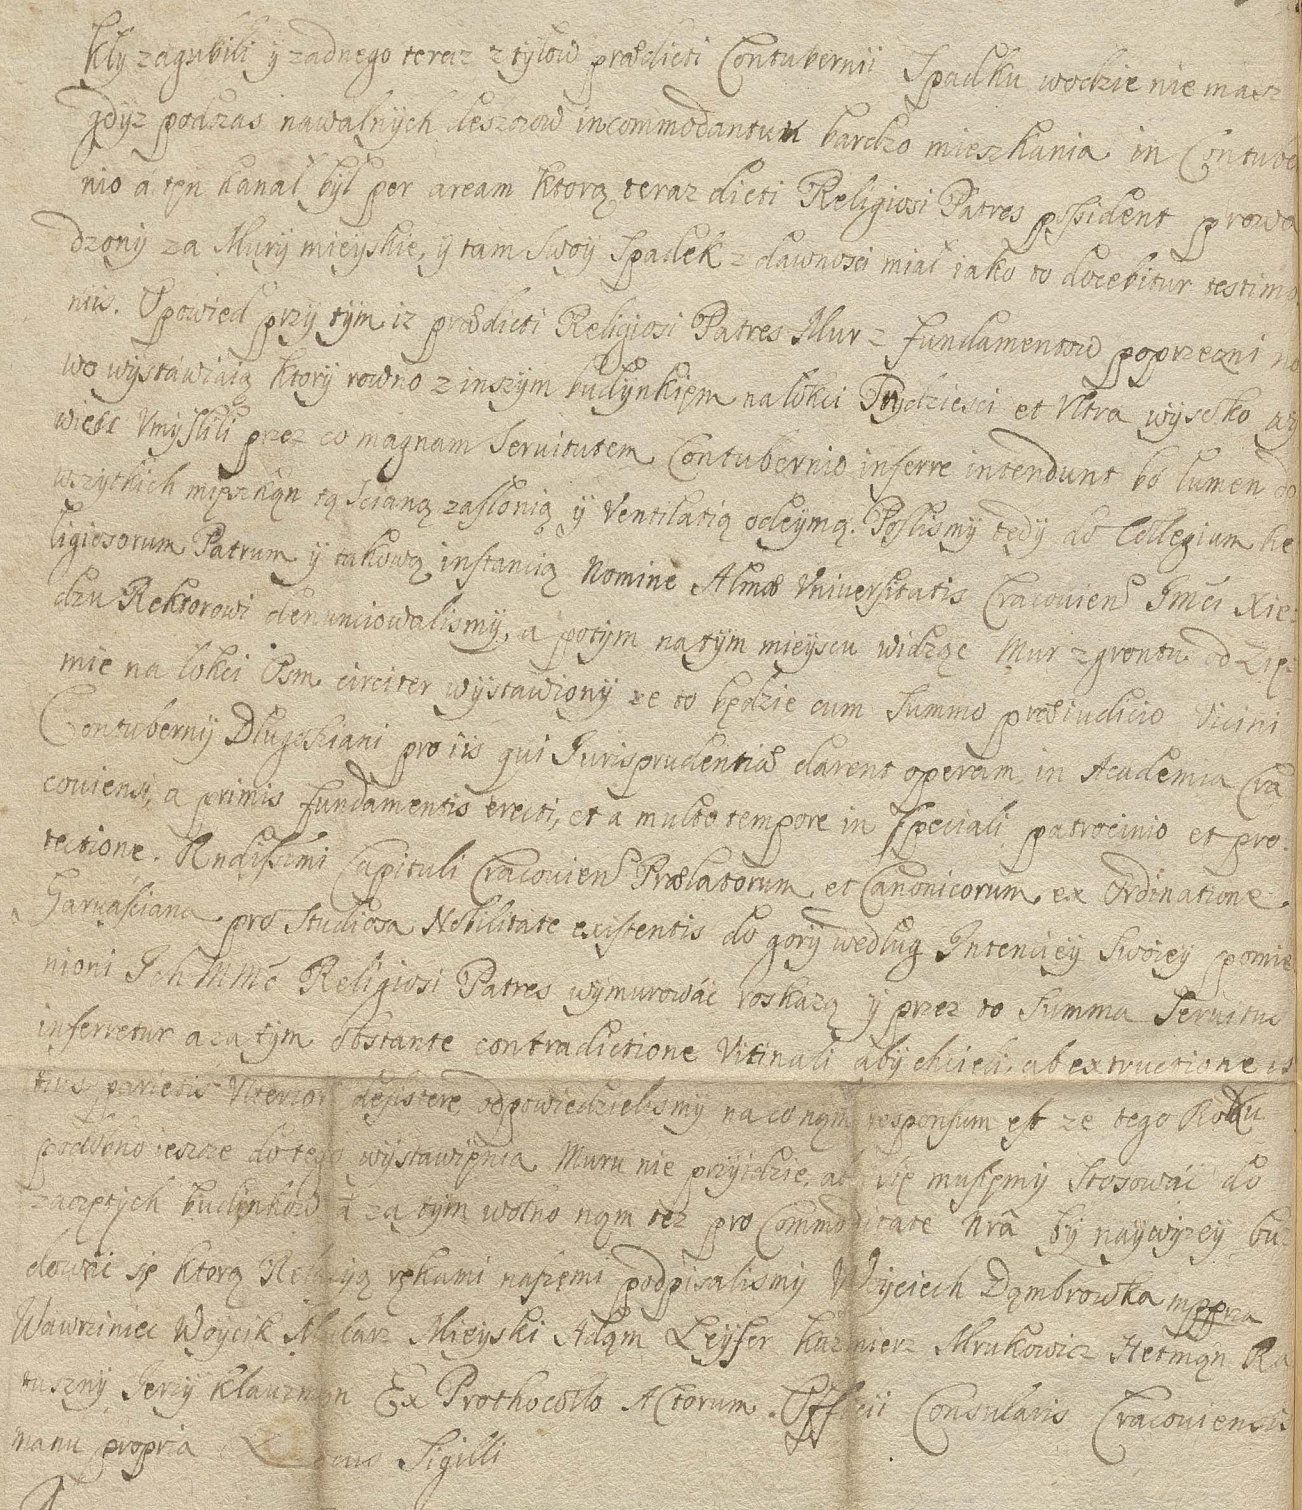 kły zagubili y zadnego teraz z tyłow prædicti Contubernii Spadku wodzie nie masz
gdyz podszas nawalnych deszczow incommodantur bardzo mieszkania in Contuber
nio a tęn kanał był per aream ktorą teraz dicti Religiosi Patres possident prowa
dzony za Mury mieyskie, y tam swoy Spadek z dawnosci miał iako to docebitur testimo
niis. Opowied przy tym iz prædicti Religiosi Patres Mur z fundamentow poprzeczni no
wo wystawiaią ktory rowno z inszym budynkięm na łokci Trydziesci et Vltra wysoko wy
wieść Vmyslili przez co magnam Seruitutem Contubernio inferre intendunt bo lumen do
wszytkich mięszkąn tą scianą zasłonią y Ventilatią odeymą. Poslismy tedy ad Collegium Re
ligiosorum Patrum y takową instancią Nomine Almæ Vniversitatis Cracovien Jmci Xię
dzu Rektorowi denunciowalismy, a potym na tym mieyscu widząc Mur z grontu od Zię
mie na łokci Osm circiter wystawiony ze to będzie cum Summo præiudicio Vicini
Contubernij Dlugosziani pro iis qui Jurisprudentiæ darent operam in Academia Cra
coviensi, a primis fundamentis erecti, et a multo tempore in speciali patrocinio et pro
tectione. Rndissimi Capituli Cracovien Prælatorum et Canonicorum ex Ordinatione
pro Studiosa Nobilitate existentis do gory według Intenciey Swoiey pomie
nioni Ich MMć Religiosi Patres wymurowáć roskazą y przez to Summa Seruitus
inferretur a za tym obstante contradictione Vicinali aby chcieli ab extructione is
tius parietis Vlterior desistere odpowiedzielismy na co nąm responsum est ze tego Roku
podobno ieszcze do tego wystawięnia Muru nie przyidzie, ale się musięmy stosowáć do
zaczętych budynkow a za tym wolno nąm tez pro Commoditate nra by naywyzey bu
dowáć się ktorą Relacyą rękami naszęmi podpisalismy Woyciech Dąmbrowka mppria
Wawrziniec Woycik Mularz Mieyski Adąm Leyser Kazmierz Mrukowicz Hetmąn Ra
tuszny Jerzy Klauzmąn Ex Prothocollo Actorum Officii Consularis Cracoviensis
manu propria Locus Sigilli